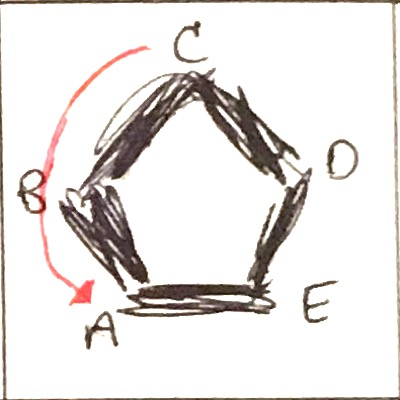 C
B D
A E